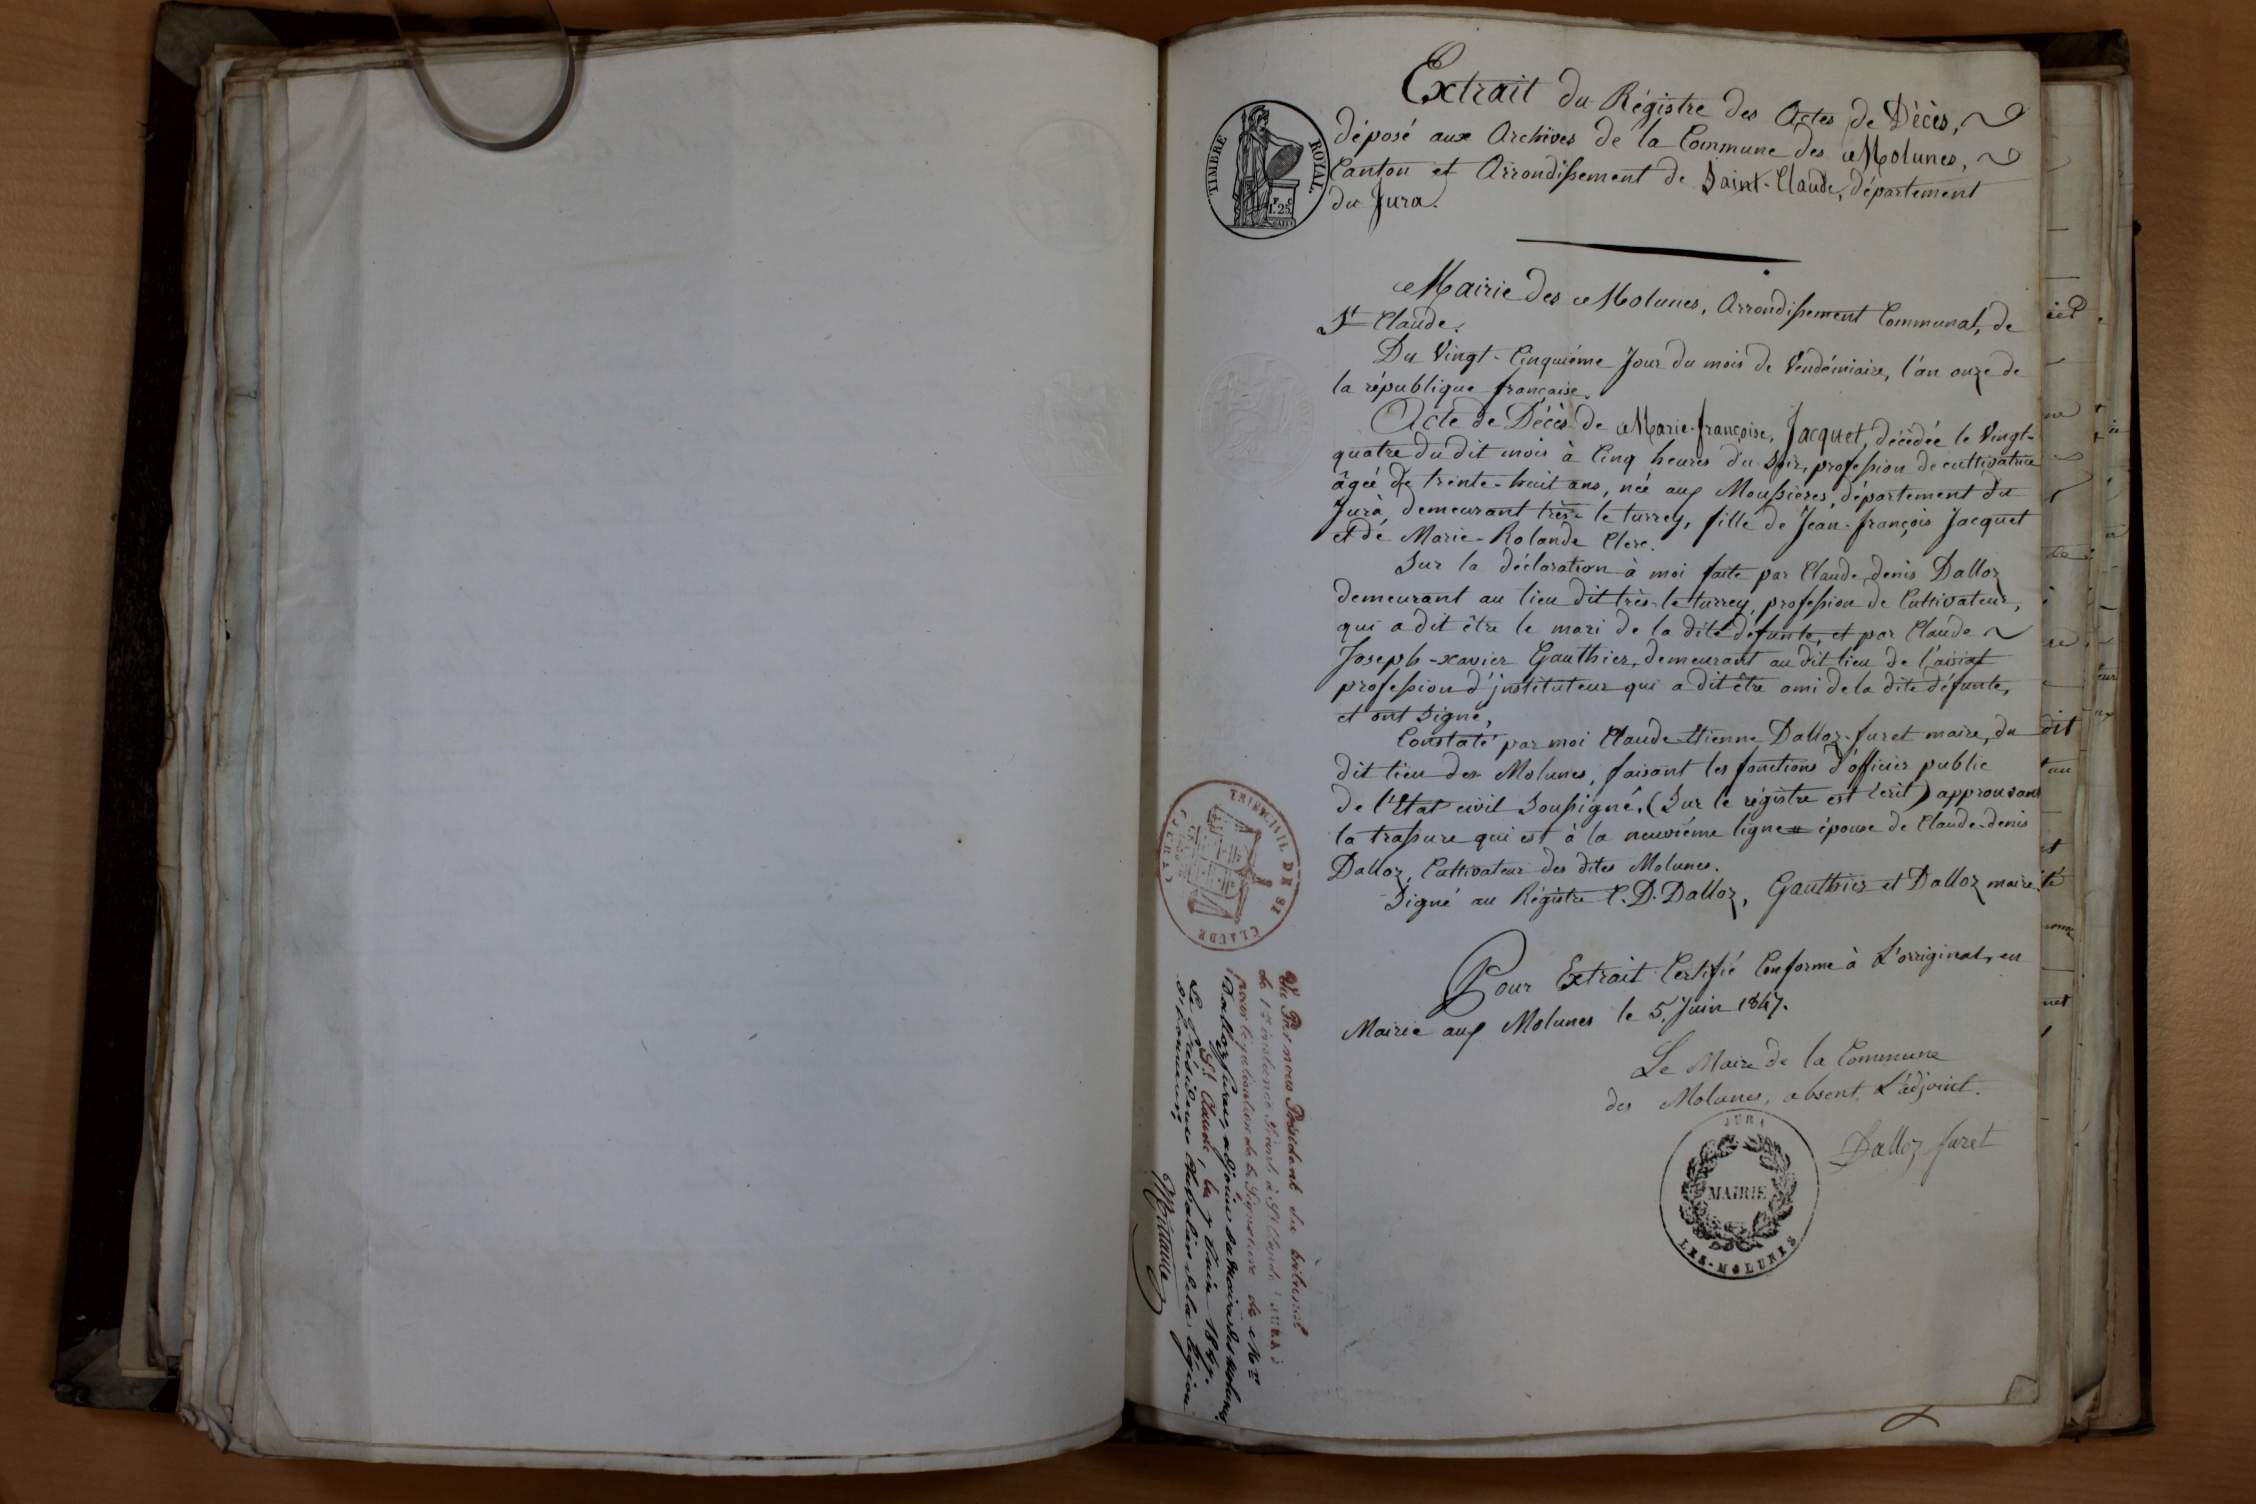 Extrait du Régistre des Actes de Décès,
déposé aux Archives de la Commune des Molunes,
Canton et Arrondissement de Saint-Claude, département
du Jura.
TIMBRE ROYAL.
1.25
Mairie des Molunes, Arrondissement Communal, de
St Claude.
Du Vingt-Cinquiéme Jour du mois de Vendémiaire, l'an onze de
la république française.
Acte de Décès de Marie-françoise, Jacquet, décédée le Vingt-
quatre du dit mois à Cinq heures du soir, profession de cultivatrice
âgée de trente-huit ans, née aux Moussières, département du
Jura, demeurant très-le turrey, fille de Jean-françois Jacquet
et de Marie-Rolande Clerc.
Sur la déclaration à moi faite par Claude denis Dalloz
demeurant au lieu dit très-le turrey, profession de Cultivateur,
qui a dit être le mari de la dite défunte, et par Claude
Joseph-xavier Gauthier, demeurant au dit lieu de
profession d'jnstituteur qui a dit être ami de la dite défunte,
et ont signé,
Constaté par moi Claude Etienne Dalloz-furet maire, du
dit lieu des Molunes, faisant les fonctions d'officier public
de l'Etat civil Soussigné, (Sur le régistre est écrit) approuvant
la trassure qui est à la neuviéme ligne épouse de Claude-denis
Dalloz, Cultivateur des dites Molunes.
Signé au Régistre C. D. Dalloz, Gauthier et Dalloz maire.
Pour Extrait Certifié Conforme à L'original, en
Mairie aux Molunes le 5 Juin 1847.
Le Maire de la Commune
des Molunes, absent, L'adjoint.
Dalloz furet
JURA
MAIRIE
LES-MOLUNES
TRIBUNAL DE ST CLAUDE
Vu Par nous Président du tribunal
de 1re instance Séant à St Claude (Jura)
pour légalisation de la Signature de Mr
Dalloz furet, adjoint au maire des Molunes
St Claude, le 7 Juin 1847.
Le Président Chevalier de la Légion
d'honneur,